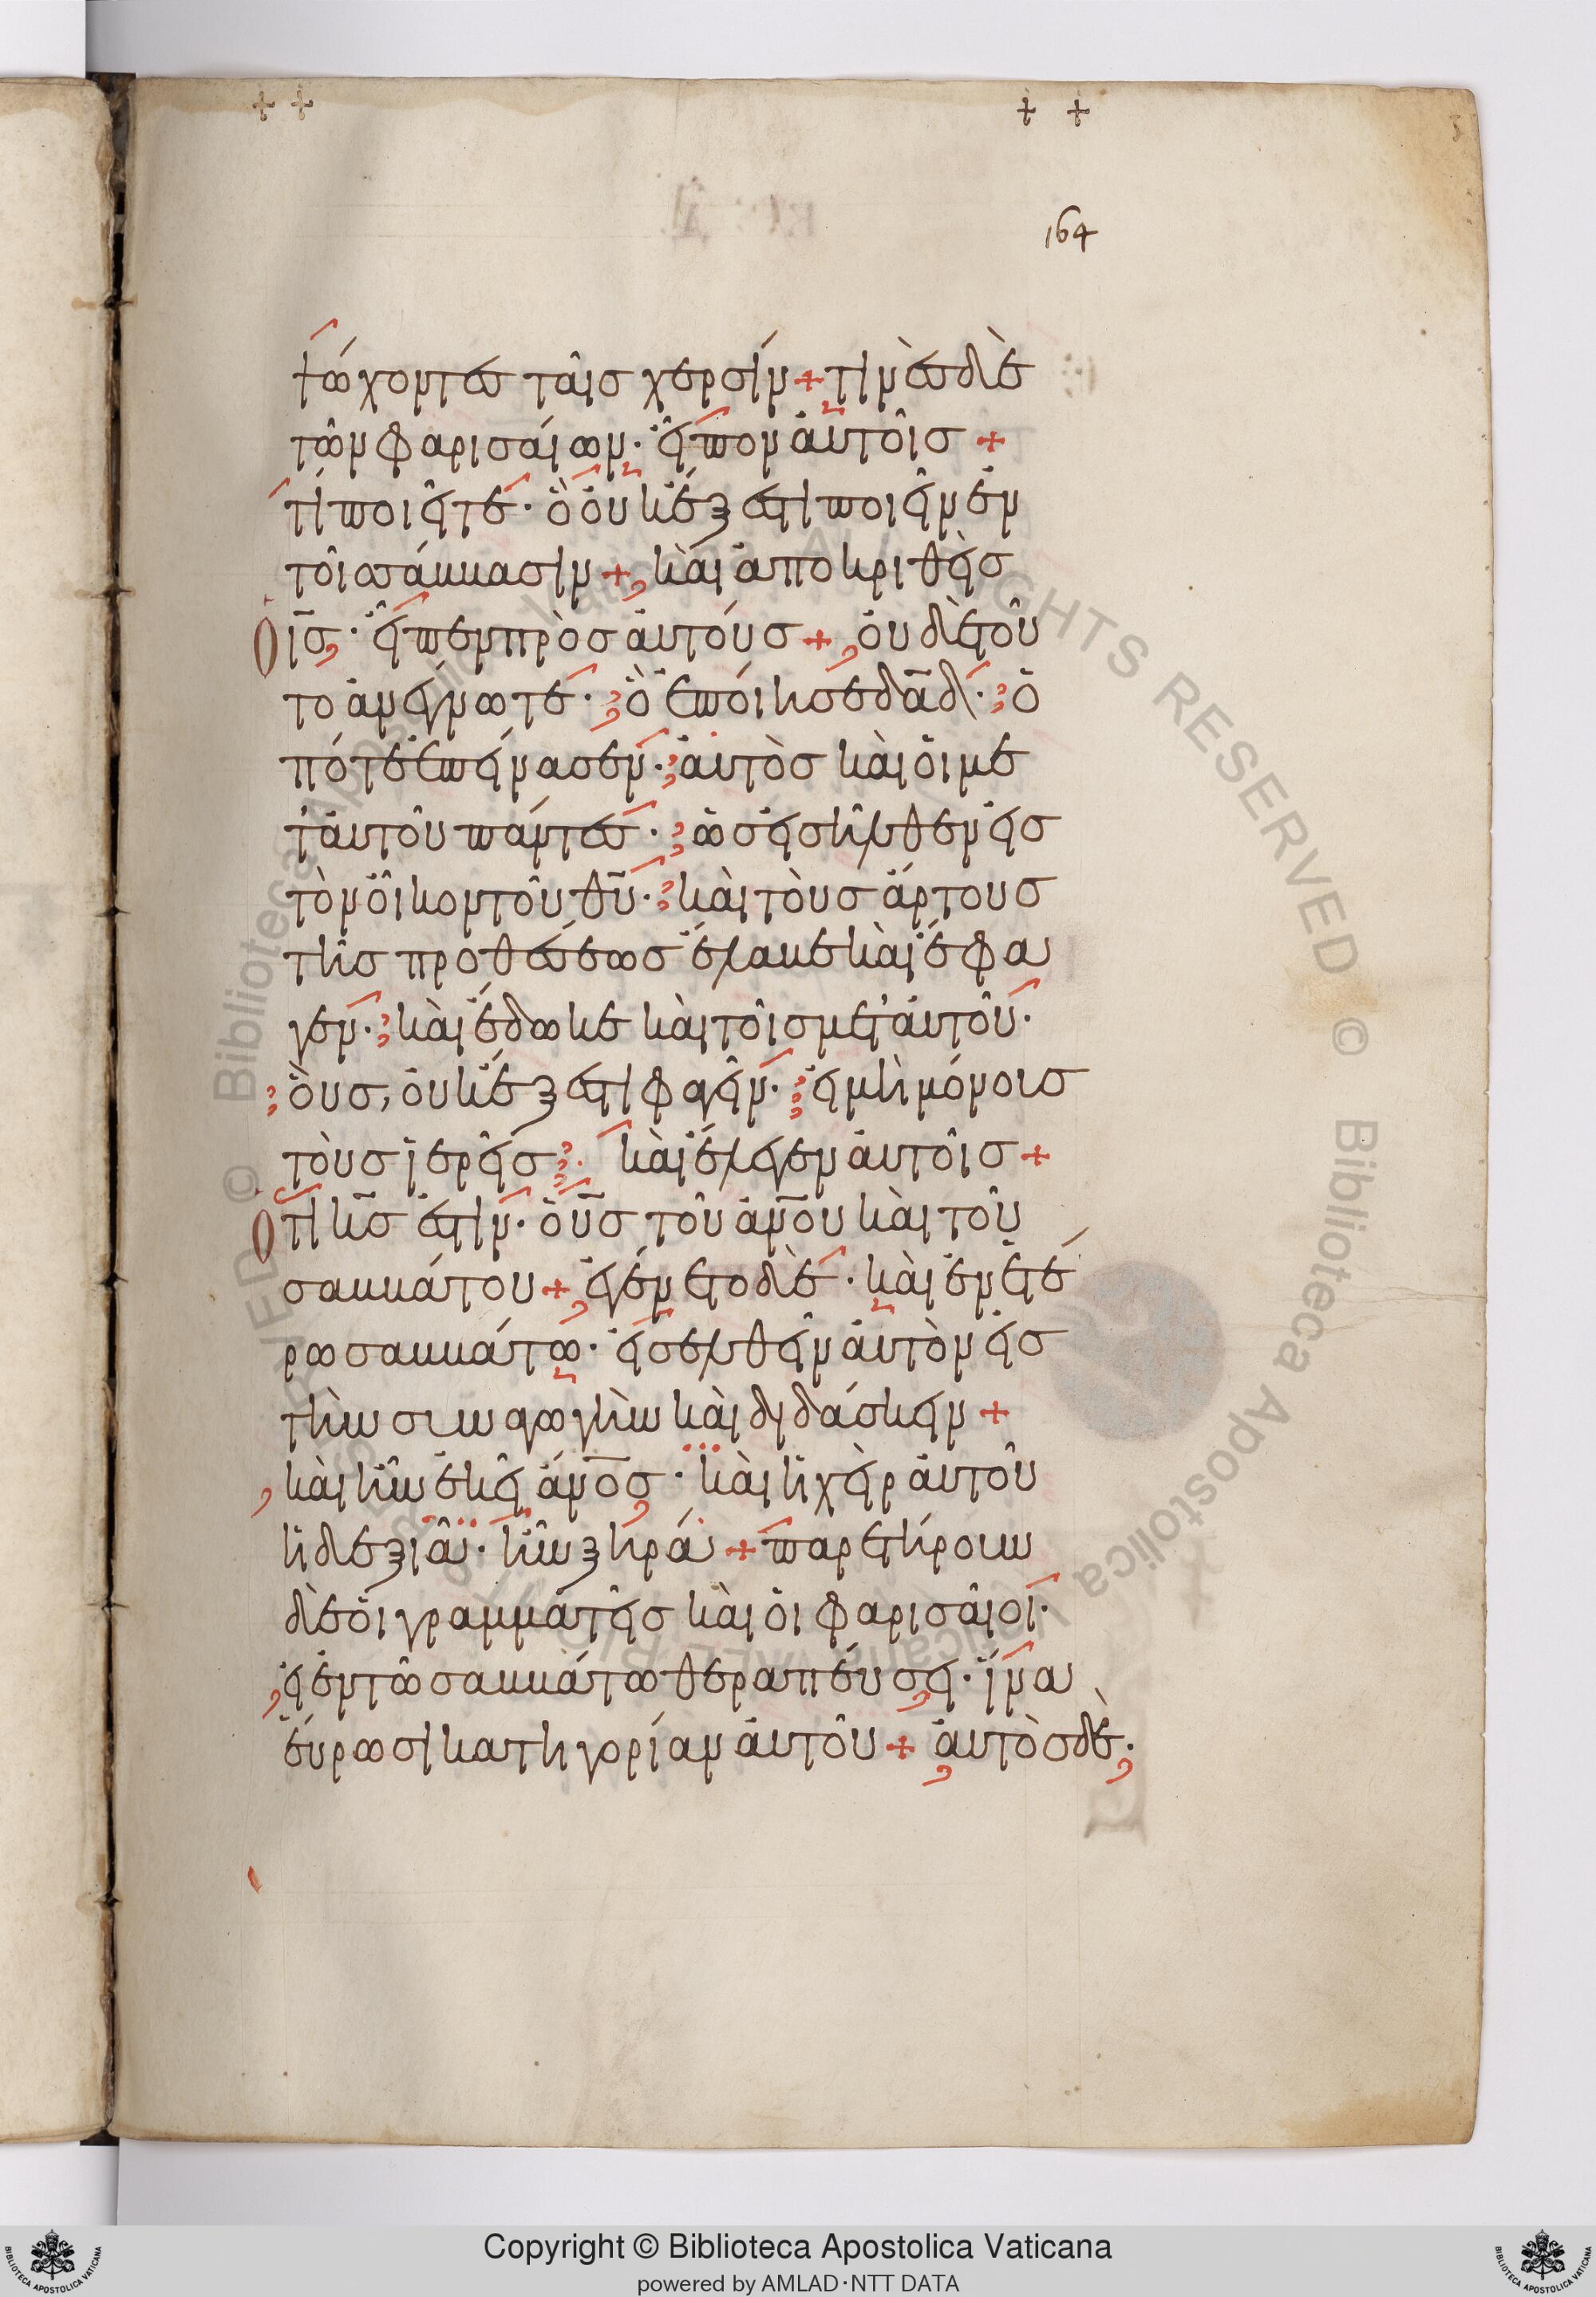 164
ψώχοντες ταῖς χερσίν + τινὲς δὲ
τῶν φαρισαίων· εἶπον αὐτοῖς +
τί ποιεῖτε· ὃ οὐκ ἔξεστι ποιεῖν ἐν
τοῖς σάββασιν + καὶ ἀποκριθεὶς
Ὁ ι̅ς̅· εἶπεν πρὸς αὐτούς + οὐδὲ τοῦ
το ἀνέγνωτε· ὃ ἐποίησε δα̅δ̅· ὁ
πότε ἐπείνασεν· αὐτὸς καὶ οἱ με
τ' αὐτοῦ πάντες· ὡς εἰσῆλθεν εἰς
τὸν οἶκον τοῦ θ̅υ̅· καὶ τοὺς ἄρτους
τῆς προθέσεως ἔλαβε καὶ ἔφα
γεν· καὶ ἔδωκε καὶ τοῖς μετ' αὐτοῦ·
οὓς, οὐκ ἔξεστι φαγεῖν· εἰ μὴ μόνοις
τοὺς ἱερεῖς· καὶ ἔλεγεν αὐτοῖς +
Ὅτι κ̅ς̅ ἐστιν· ὁ υ̅ς̅ τοῦ α̅ν̅ο̅υ καὶ τοῦ
σαββάτου + ἐγένετο δὲ· καὶ ἐν ἑτέ
ρω σαββάτω· εἰσελθεῖν αὐτὸν εἰς
τὴν συναγωγὴν καὶ διδάσκειν +
καὶ ἦν ἐκεῖ α̅ν̅ο̅ς̅· καὶ ἡ χεὶρ αὐτοῦ
ἡ δεξιᾶ· ἦν ξηρά + παρετήρουν
δὲ οἱ γραμματεῖς καὶ οἱ φαρισαῖοι·
εἰ ἐν τῶ σαββάτω θεραπεύσει· ἵνα
εὕρωσι κατηγορίαν αὐτοῦ + αὐτὸς δὲ·
Copyright © Biblioteca Apostolica Vaticana
powered by AMLAD·NTT DATA